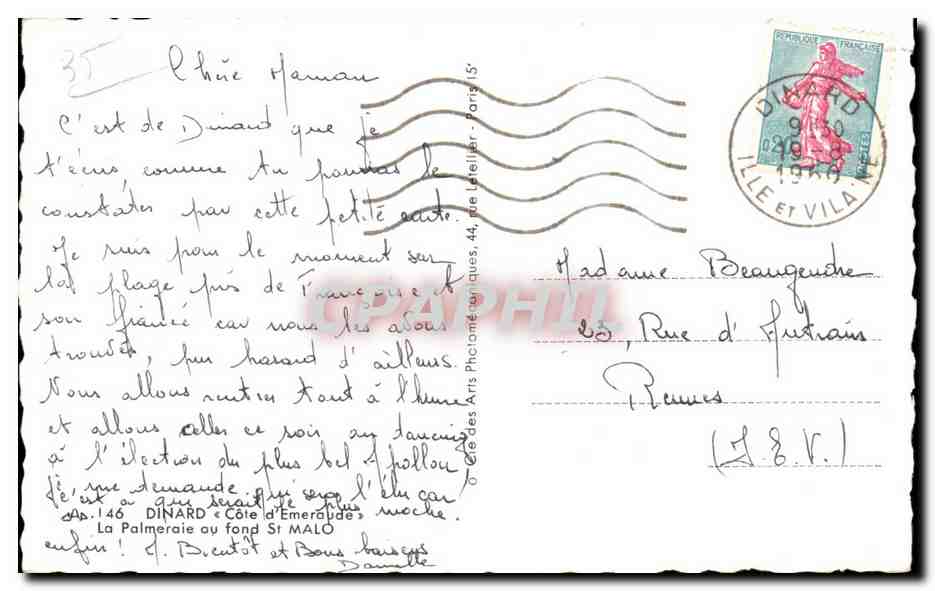 35
Chère Maman
C'est de Dinard que je
t'écris comme tu pourras le
constater par cette petite carte.
Je suis pour le moment sur
la plage près de Françoise et
son fiancé car nous les avons
trouvés, par hasard d'ailleurs.
Nous allons rentrer tout à l'heure
et allons aller ce soir au dancing
à l'élection du plus bel Apollon
je me demande qui sera l'élu car
c'est à qui serait le plus moche.
A. 146 DINARD « Côte d'Emeraude »
La Palmeraie au fond St MALO
enfin! A. Bientôt et Bons baisers
Danielle
© Cie des Arts Photomécaniques, 44, rue Letellier - Paris 15e
CPAPHIL
REPUBLIQUE FRANÇAISE
POSTES
DINARD
19-8
1960
ILLE ET VILAINE
Madame Beaugendre
25, Rue d'Antrain
Rennes
(I.E.V.)